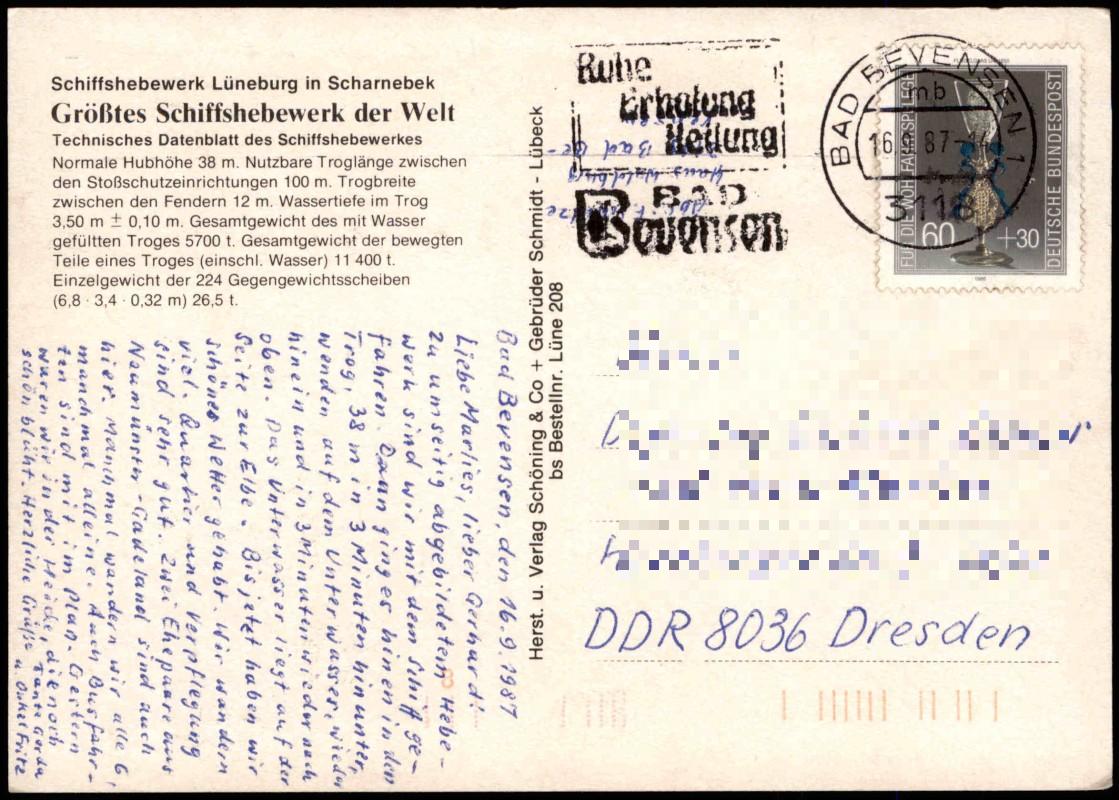 Schiffshebewerk Lüneburg in Scharnebek
Größtes Schiffshebewerk der Welt
Technisches Datenblatt des Schiffshebewerkes
Normale Hubhöhe 38 m. Nutzbare Troglänge zwischen
den Stoßschutzeinrichtungen 100 m. Trogbreite
zwischen den Fendern 12 m. Wassertiefe im Trog
3,50 m ± 0,10 m. Gesamtgewicht des mit Wasser
gefüllten Troges 5700 t. Gesamtgewicht der bewegten
Teile eines Troges (einschl. Wasser) 11 400 t.
Einzelgewicht der 224 Gegengewichtsscheiben
(6,8 · 3,4 · 0,32 m) 26,5 t.
Bad Bevensen, den 16.9.1987
Liebe Marlies, lieber Gerhard.
Zu umseitig abgebildetem Hebe-
werk sind wir mit dem Schiff ge-
fahren. Dann ging es hinein in den
Trog, 38 m in 3 Minuten hinunter,
wenden auf dem Unterwasser, wieder
hinein und in 3 Minuten wieder nach
oben. Das Unterwasser liegt auf der
Seite zur Elbe. Bis jetzt haben wir
schönes Wetter gehabt. Wir wandern
viel. Quartier und Verpflegung
sind sehr gut. Zwei Ehepaare aus
Neumünster-Gadeland sind auch
hier. Manchmal wandern wir alle 6,
manchmal alleine. Auch Busfahr-
ten sind mit im Plan. Gestern
waren wir in der Heide, die noch
schön blüht. Herzliche Grüße Tante Gerda
u. Onkel Fritz
Herst. u. Verlag Schöning & Co + Gebrüder Schmidt - Lübeck
bs Bestellnr. Lüne 208
Ruhe
Erholung
Heilung
BAD
Bevensen
Abs.:
Haus
Bad Be-
BAD BEVENSEN 1
mb
16. 87
3118
FÜR DIE WOHLFAHRTSPFLEGE
60 +30
DEUTSCHE BUNDESPOST
1986
DDR 8036 Dresden